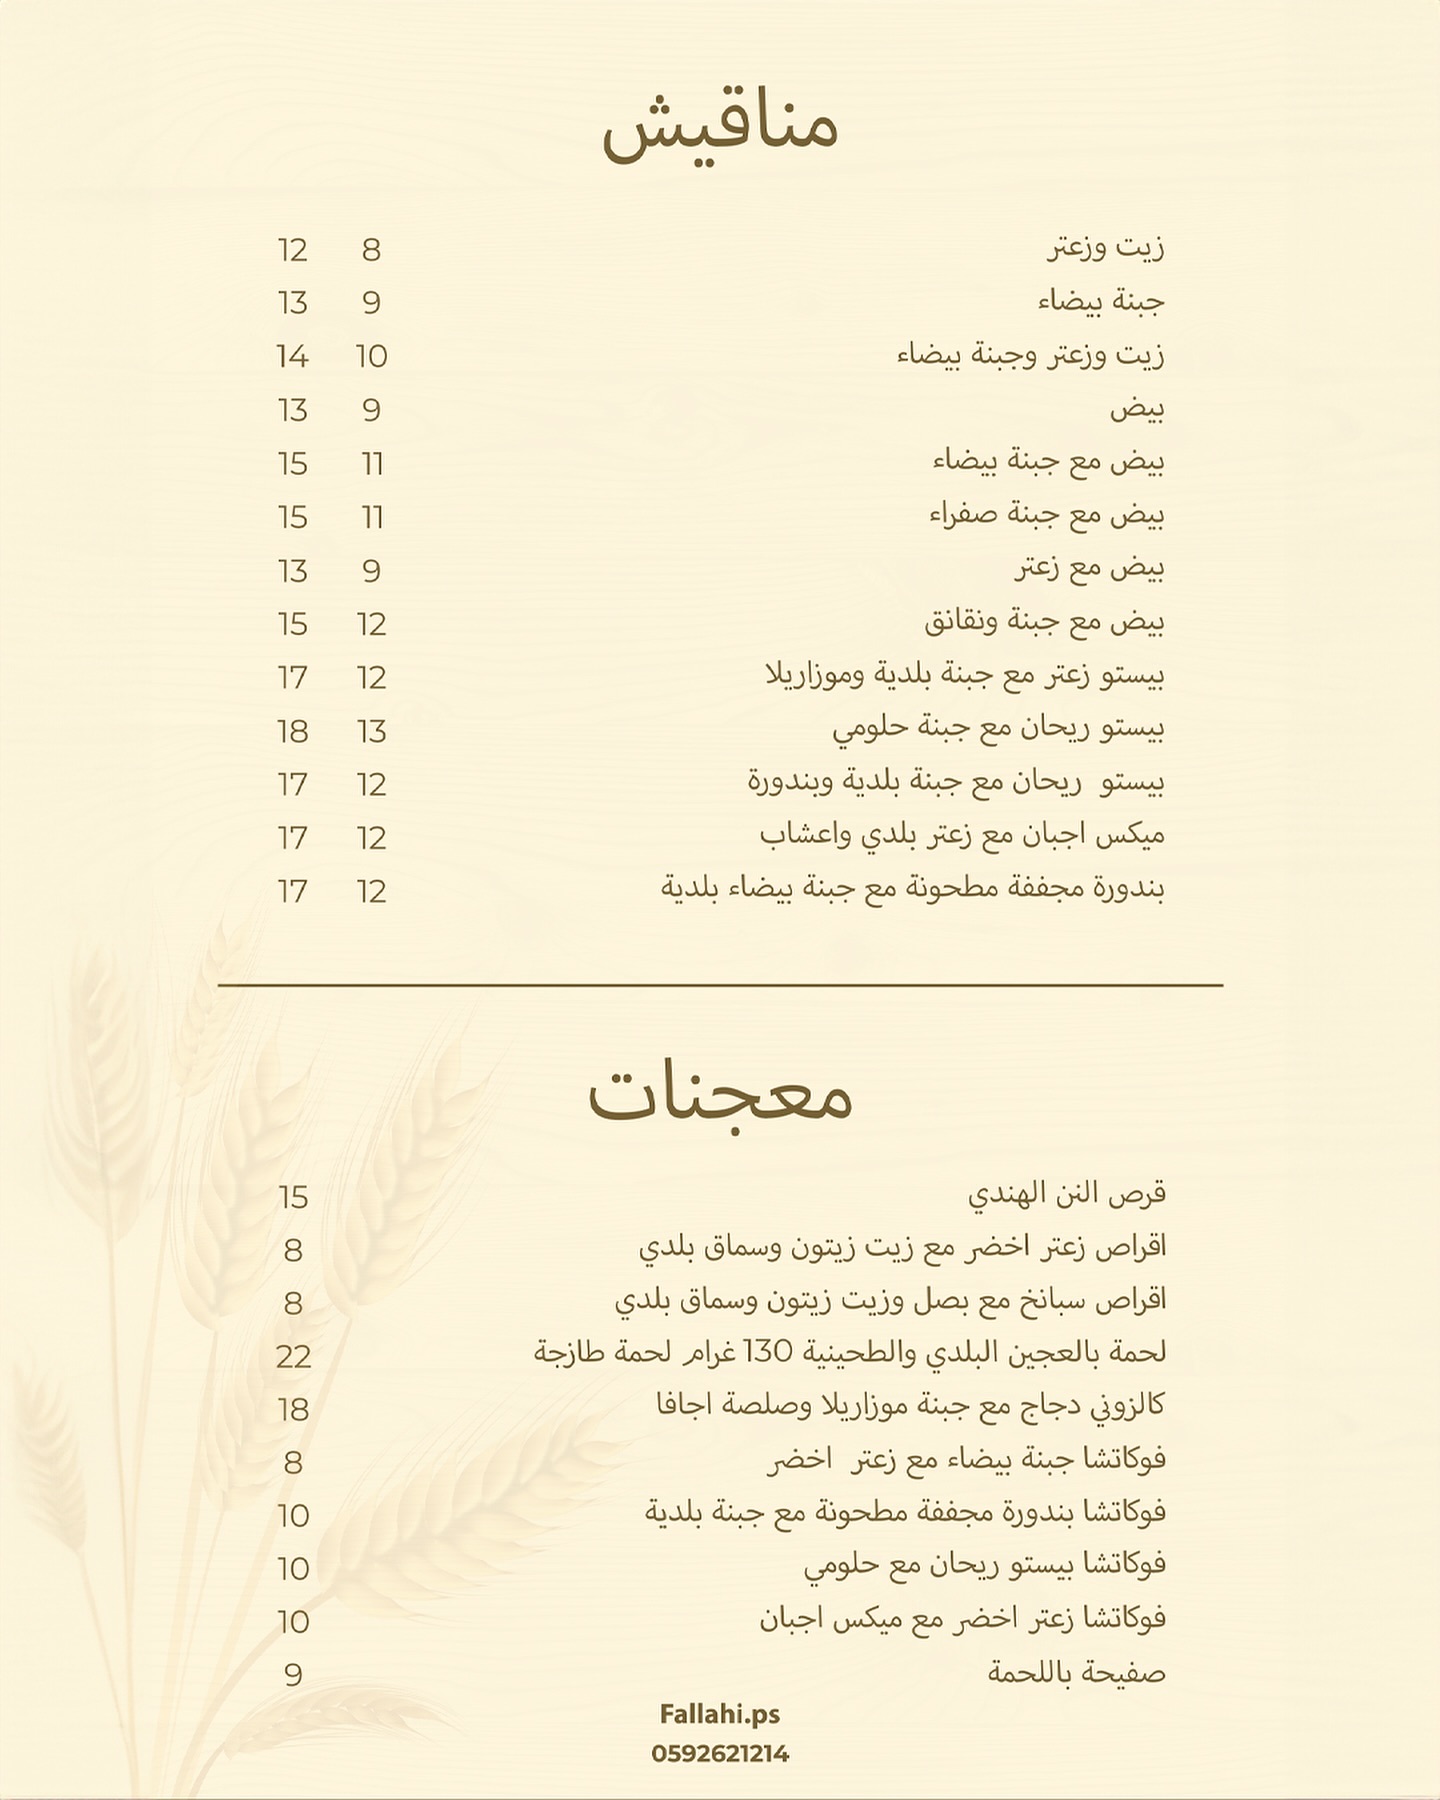 مناقيش
زيت وزعتر 8 12
جبنة بيضاء 9 13
زيت وزعتر وجبنة بيضاء 10 14
بيض 9 13
بيض مع جبنة بيضاء 11 15
بيض مع جبنة صفراء 11 15
بيض مع زعتر 9 13
بيض مع جبنة ونقانق 12 15
بيستو زعتر مع جبنة بلدية وموزاريلا 12 17
بيستو ريحان مع جبنة حلومي 13 18
بيستو ريحان مع جبنة بلدية وبندورة 12 17
ميكس اجبان مع زعتر بلدي واعشاب 12 17
بندورة مجففة مطحونة مع جبنة بيضاء بلدية 12 17
معجنات
قرص النن الهندي 15
اقراص زعتر اخضر مع زيت زيتون وسماق بلدي 8
اقراص سبانخ مع بصل وزيت زيتون وسماق بلدي 8
لحمة بالعجين البلدي والطحينية 130 غرام لحمة طازجة 22
كالزوني دجاج مع جبنة موزاريلا وصلصة اجافا 18
فوكاتشا جبنة بيضاء مع زعتر اخضر 8
فوكاتشا بندورة مجففة مطحونة مع جبنة بلدية 10
فوكاتشا بيستو ريحان مع حلومي 10
فوكاتشا زعتر اخضر مع ميكس اجبان 10
صفيحة باللحمة 9
Fallahi.ps
0592621214